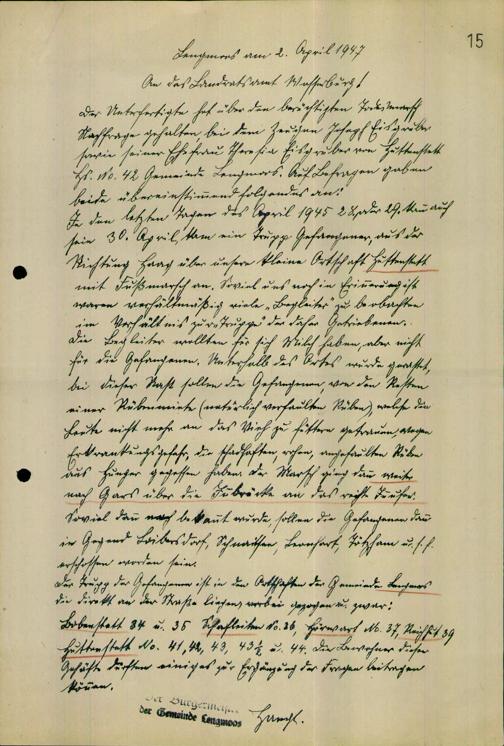 15
Lengmoos am 2. April 1947
An das Landratsamt Wasserburg!
Der Unterfertigte hat über den berüchtigten Todesmarsch
Nachfrage gehalten bei dem Zeugen Josef Eisgruber
sowie seiner Ehefrau Theresia Eisgruber von Hüttenstett
Hs. No. 42 Gemeinde Lengmoos. Auf Befragen gaben
beide übereinstimmend folgendes an:
In den letzten Tagen des April 1945 28. oder 29. kann auch
sein 30. April, kam ein Trupp Gefangener, aus der
Richtung Haag über unsere kleine Ortschaft Hüttenstett
mit Fußmarsch an. Soviel uns noch in Erinnerung ist
waren verhältnismäßig viele "Begleiter" zu beobachten
im Verhältnis zur "Truppe" der daher Getriebenen.
Die Begleiter wollten für sich Milch haben, aber nicht
für die Gefangenen. Unterhalb des Ortes wurde gerastet,
bei dieser Rast sollen die Gefangenen, von den Resten
einer Rübenmiete (natürlich verfaulten Rüben) welche die
heute nicht mehr an das Vieh zu füttern getrauen, wegen
Erkrankungsgefahr, die schadhaften, rohen, angefaulten Rüben
aus Hunger gegessen haben. Der Marsch ging dann weiter
nach Gars über die Innbrücke an das rechte Innufer.
Soviel dann noch bekannt wurde, sollen die Gefangenen dann
in Gegend Laibersdorf, Schnaitsee, u.s.f.
erschossen worden sein.
Der Trupp der Gefangenen ist in den Ortschaften der Gemeinde Lengmoos
die direkt an der Straße liegen, vorbei gezogen u. zwar:
Lobenstett 34 u. 35 Schafleiten No. 36, No. 37, 39
Hüttenstett No. 41, 42, 43, 43½ u. 44. Die Bewohner dieser
Gehöfte dürften einiges zur Ergänzung der Fragen beitragen
können.
Der Bürgermeister
der Gemeinde Lengmoos